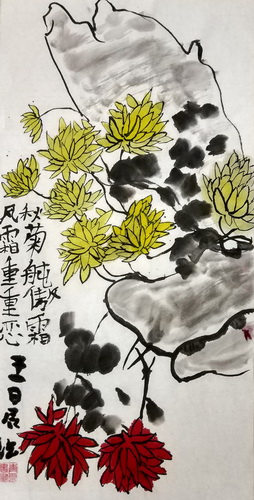 秋菊能傲霜
风霜重重恶
王日